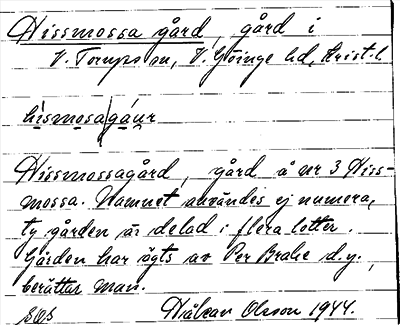 Hissmossa gård, gård i
V. Torups sn, V. Göinge hd, Krist. l
hismosagáur
Hissmossagård, gård å nr 3 Hiss-
mossa. Namnet användes ej numera,
ty gården är delad i flera lotter.
Gården har ägts av Per Brahe d.y.,
berättar man.
Håkan Olsson 1944.